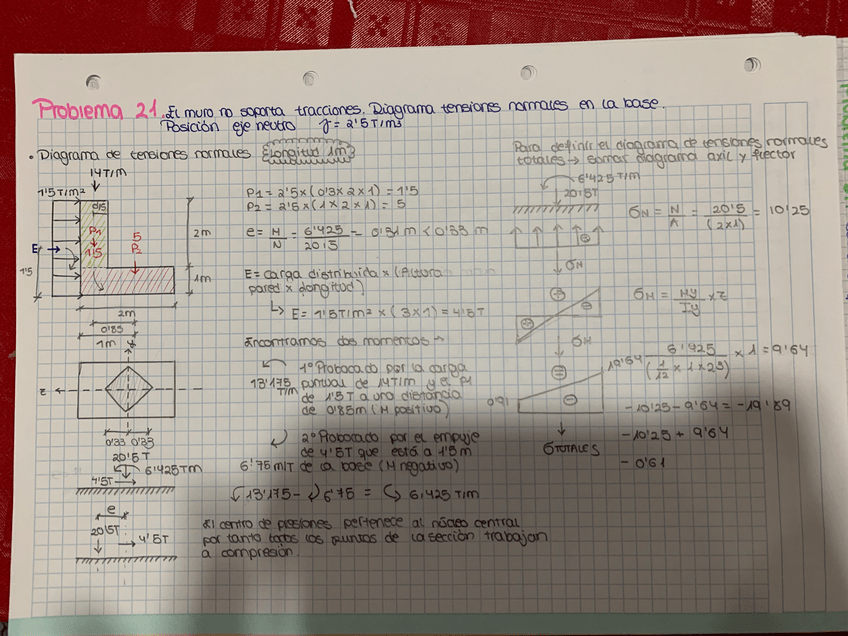 Problema 21. El muro no soporta tracciones. Diagrama tensiones normales en la base.
Posición eje neutro γ = 2'5 T/m3
• Diagrama de tensiones normales Longitud 1m
14T/M
1'5T/m²
0'15
P1
1'5
5
P2
E
1'5
2m
1m
2m
0'85
1m
Y
z
0'33 0'33
20'5T
6'425Tm
4'5T
e
20'5T
4'5T
P1 = 2'5 x (0'3 x 2 x 1) = 1'5
P2 = 2'5 x (1 x 2 x 1) = 5
e = M/N = 6'425/20'5 = 0'31 m < 0'33 m
E = carga distribuida x (Altura
pared x longitud)
↳ E = 1'5T/m² x (3x1) = 4'5T
Encontramos dos momentos →
13'175 T/m
1º Probocado por la carga
puntual de 14T/m y el P1
de 1'5T a una distancia
de 0'85m (M positivo)
2º Probocado por el empuje
de 4'5T que está a 1'5m
6'75m/T de la base (M negativo)
13'175 - 6'75 = 6'425 T/m
El centro de presiones pertenece al núcleo central
por tanto todos los puntos de la sección trabajan
a compresión.
Para definir el diagrama de tensiones normales
totales → sumar diagrama axil y flector
6'425T/m
20'5T
σN = N/A = 20'5/(2x1) = 10'25
σN
σM = My/Iy x z
σM
6'425/(1/12 x 1 x 2³) x 1 = 9'64
19'64
0'61
σTOTALES
-10'25 - 9'64 = -19'89
-10'25 + 9'64
-0'61